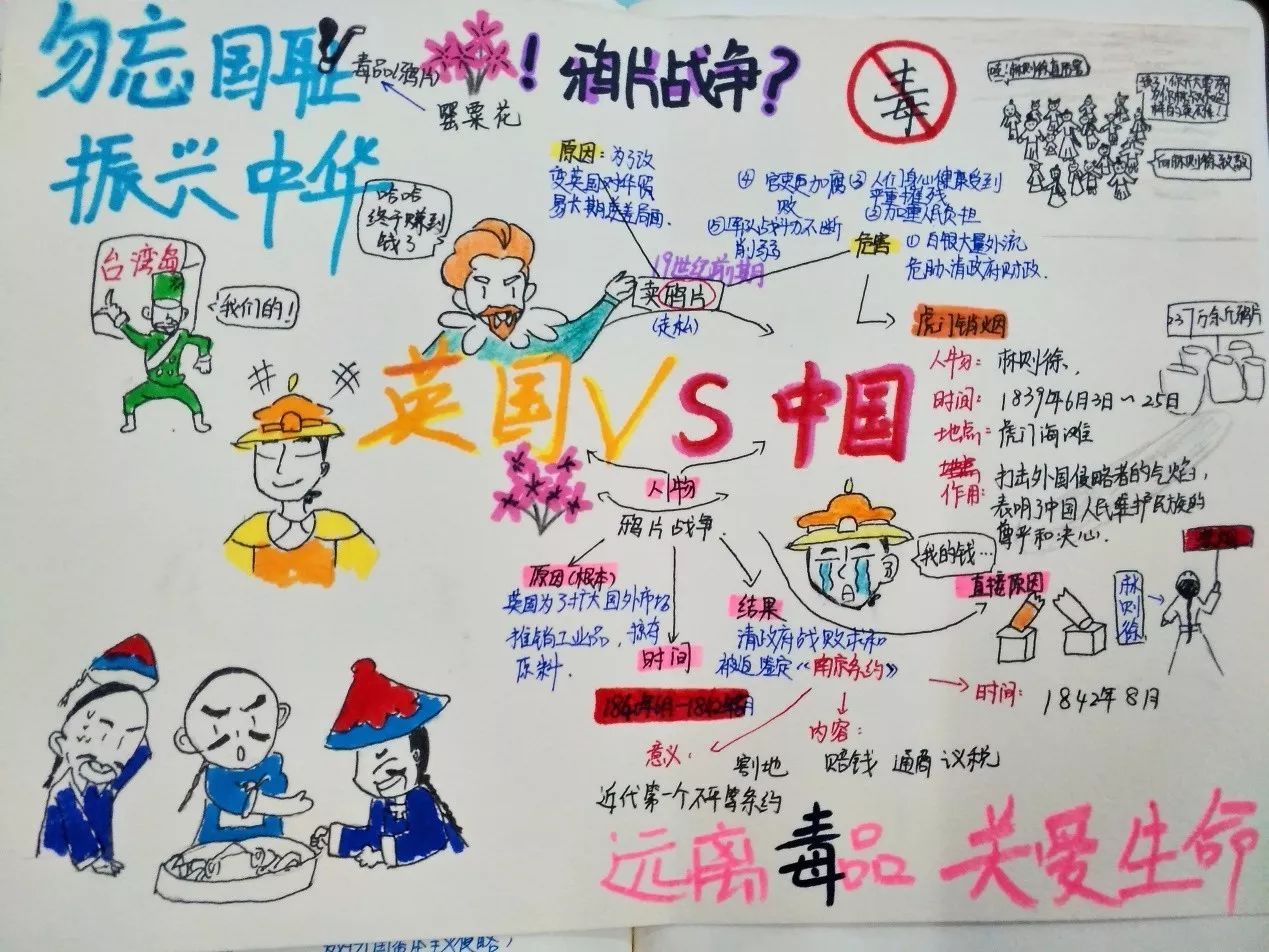 勿忘国耻
振兴中华
毒品(鸦片)
罂粟花
!鸦片战争?
毒
向林则徐致敬
原因:为了改
变英国对华贸
易长期逆差局面.
④ 官吏更加腐
败
③ 人们身心健康受到
严重摧残
②加重人民负担
⑤军队战斗力不断
削弱
危害
① 白银大量外流
危胁清政府财政.
哈哈
终于赚到
钱了
19世纪前期
卖鸦片
(走私)
台湾岛
我们的!
虎门销烟
人物: 林则徐.
时间: 1839年6月3日~25日
地点: 虎门海滩
作用: 打击外国侵略者的气焰,
表明了中国人民维护民族的
尊严和决心.
237万余斤鸦片
英国VS中国
人物
鸦片战争.
我的钱…
直接原因
林则徐
原因(根本)
英国为了扩大国外市场
推销工业品, 掠夺
原料.
时间
1840年6月-1842年8月
结果
清政府战败求和
被迫鉴定《南京条约》
时间: 1842年8月
意义:
近代第一个不平等条约
内容:
割地 赔钱 通商 议税
远离毒品 关爱生命